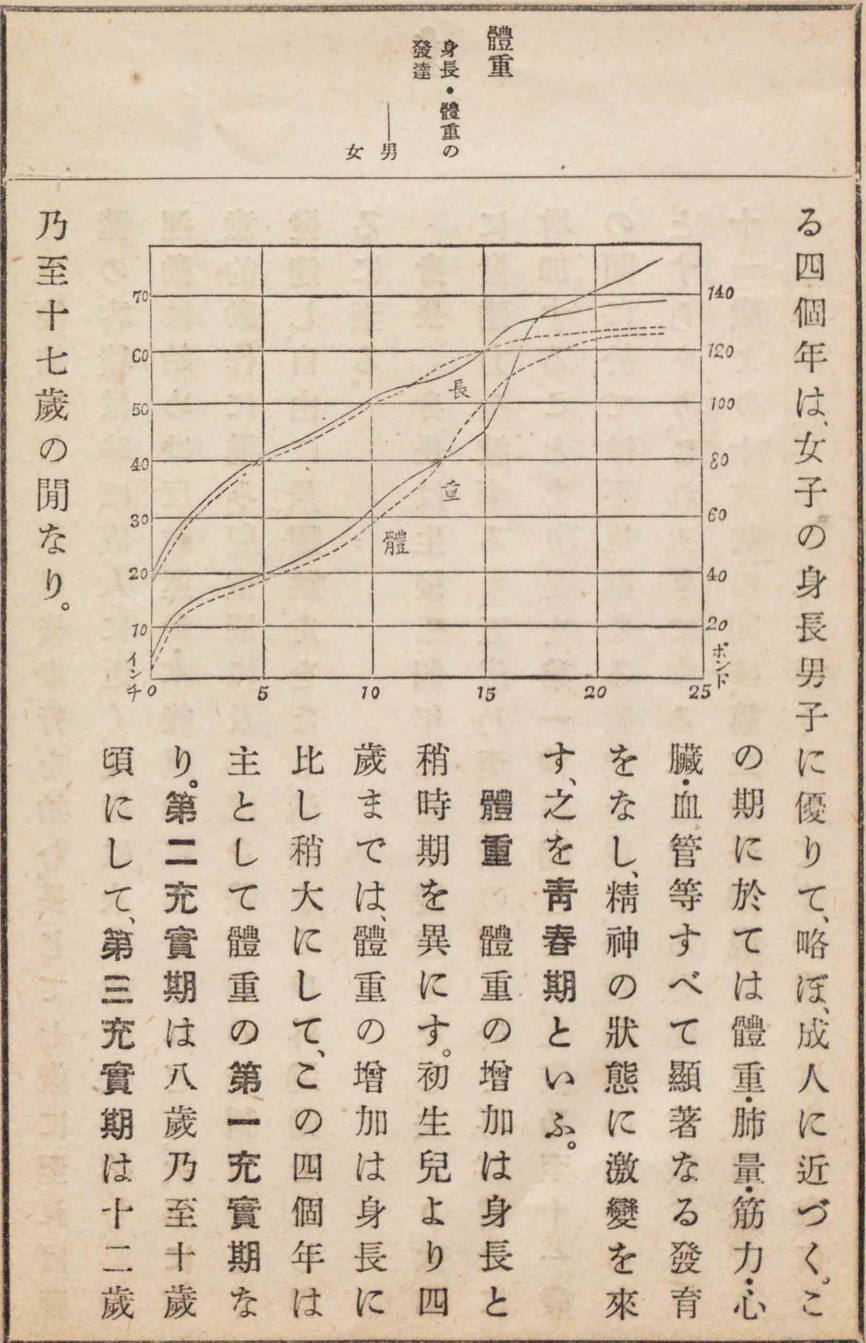 體重
身長・體重の
發達
男
女
る四個年は、女子の身長男子に優りて、略ぼ、成人に近づく。こ
の期に於ては體重・肺量・筋力・心
臟・血管等すべて顯著なる發育
をなし、精神の狀態に激變を來
す、之を靑春期といふ。
體重 體重の增加は身長と
稍時期を異にす。初生兒より四
歲までは、體重の增加は身長に
比し稍大にして、この四個年は
主として體重の第一充實期な
り。第二充實期は八歲乃至十歲
頃にして、第三充實期は十二歲
乃至十七歲の間なり。
70
60
50
40
30
20
10
インチ
140
120
100
80
60
40
20
ポンド
0 5 10 15 20 25
長
重
體